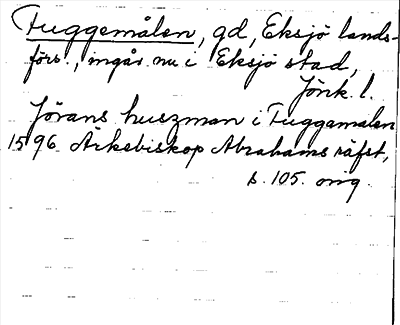 Fuggemålen, gd, Eksjö lands-
förs., ingår nu i Eksjö stad,
Jönk. l.
Jörans huszman i Fuggamalen
1596. Ärkebiskop Abrahams räfst,
s. 105. orig.